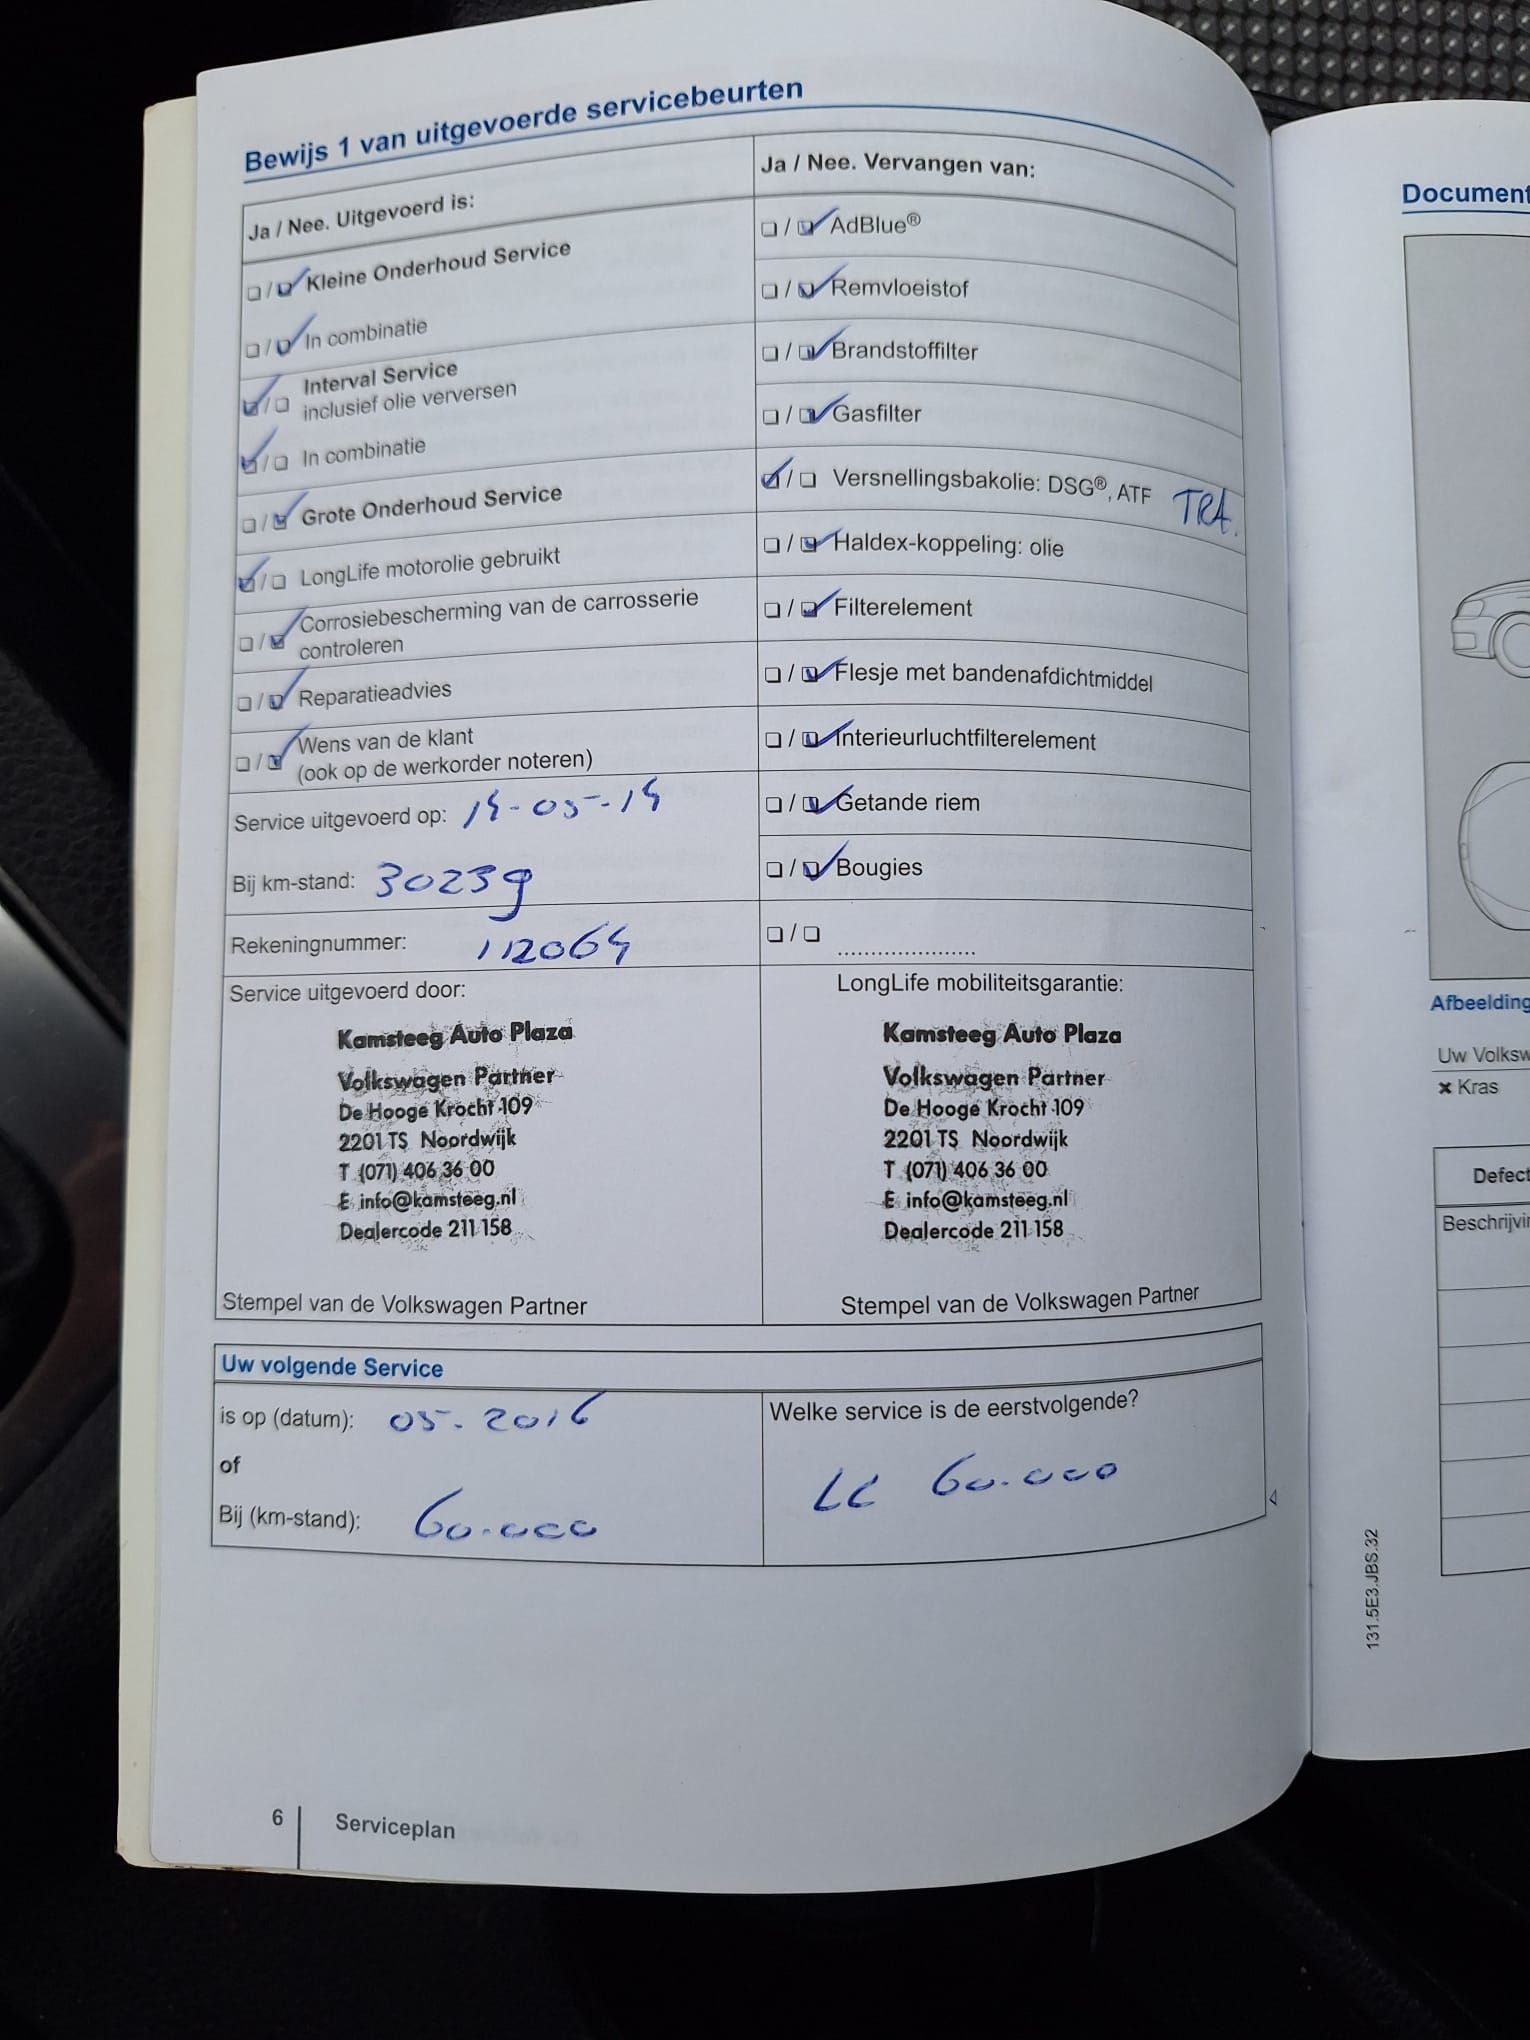 Bewijs 1 van uitgevoerde servicebeurten
Ja / Nee. Uitgevoerd is:
Kleine Onderhoud Service
In combinatie
Interval Service
inclusief olie verversen
In combinatie
Grote Onderhoud Service
LongLife motorolie gebruikt
Corrosiebescherming van de carrosserie
controleren
Reparatieadvies
Wens van de klant
(ook op de werkorder noteren)
Service uitgevoerd op: 14-05-14
Bij km-stand: 30239
Rekeningnummer: 112064
Service uitgevoerd door:
Kamsteeg Auto Plaza
Volkswagen Partner
De Hooge Krocht 109
2201 TS Noordwijk
T (071) 406 36 00
E info@kamsteeg.nl
Dealercode 211 158
Stempel van de Volkswagen Partner
Ja / Nee. Vervangen van:
AdBlue®
Remvloeistof
Brandstoffilter
Gasfilter
Versnellingsbakolie: DSG®, ATF TRA.
Haldex-koppeling: olie
Filterelement
Flesje met bandenafdichtmiddel
Interieurluchtfilterelement
Getande riem
Bougies
LongLife mobiliteitsgarantie:
Kamsteeg Auto Plaza
Volkswagen Partner
De Hooge Krocht 109
2201 TS Noordwijk
T (071) 406 36 00
E info@kamsteeg.nl
Dealercode 211 158
Stempel van de Volkswagen Partner
Uw volgende Service
is op (datum): 05-2016
of
Bij (km-stand): 60.000
Welke service is de eerstvolgende?
LL 60.000
6
Serviceplan
Document
Afbeelding
Uw Volksw
× Kras
Defect
Beschrijvin
131.5E3.JBS.32